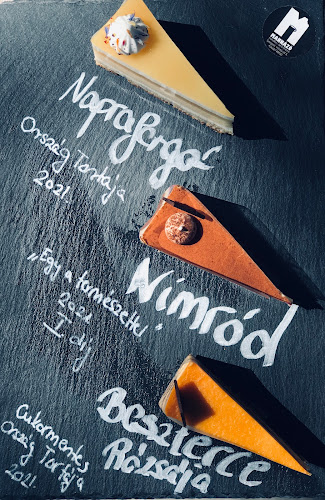 Napraforgó
Ország Tortája
2021.
Nimród
„Egy a természettel”
2021
I díj
Beszterce
Rózsája
Cukormentes
Ország Tortája
2021.